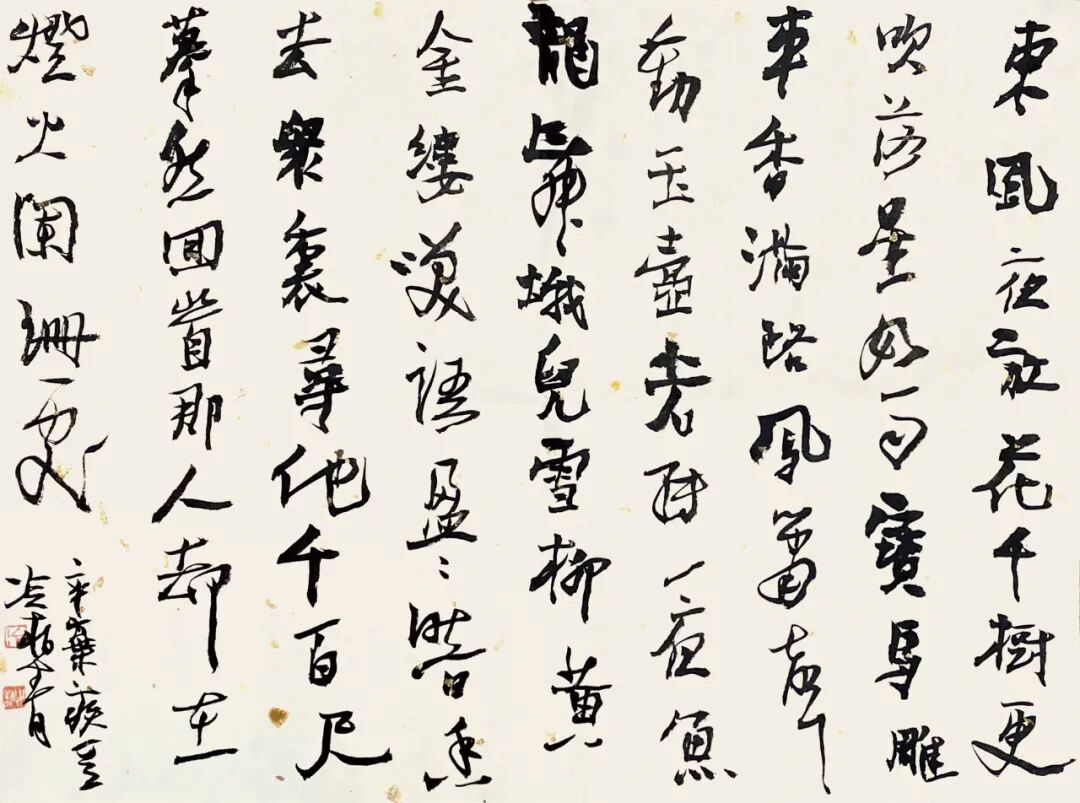 東風夜放花千樹更
吹落星如雨寶馬雕
車香滿路鳳簫聲
動玉壺光轉一夜魚
龍舞〻蛾兒雪柳黃
金縷笑語盈〻暗香
去眾裏尋他千百度
驀然回首那人却在
燈火闌珊處
辛棄疾
冷柏青